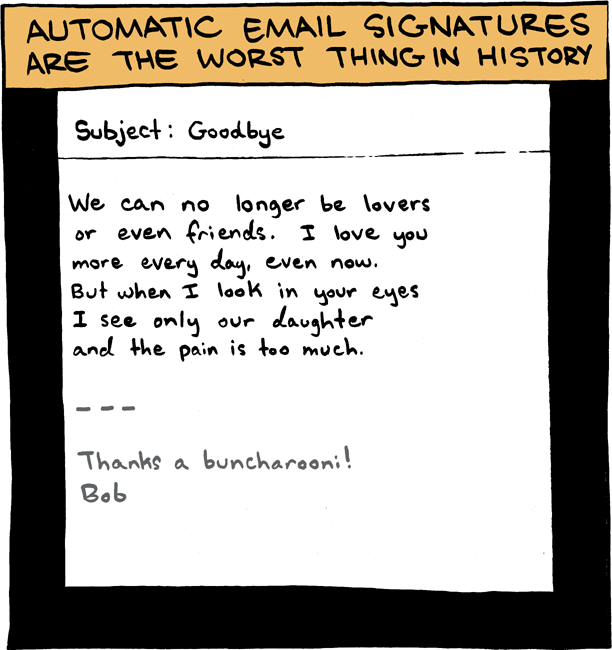 AUTOMATIC EMAIL SIGNATURES
ARE THE WORST THING IN HISTORY
Subject: Goodbye
We can no longer be lovers
or even friends. I love you
more every day, even now.
But when I look in your eyes
I see only our daughter
and the pain is too much.
---
Thanks a buncharooni!
Bob